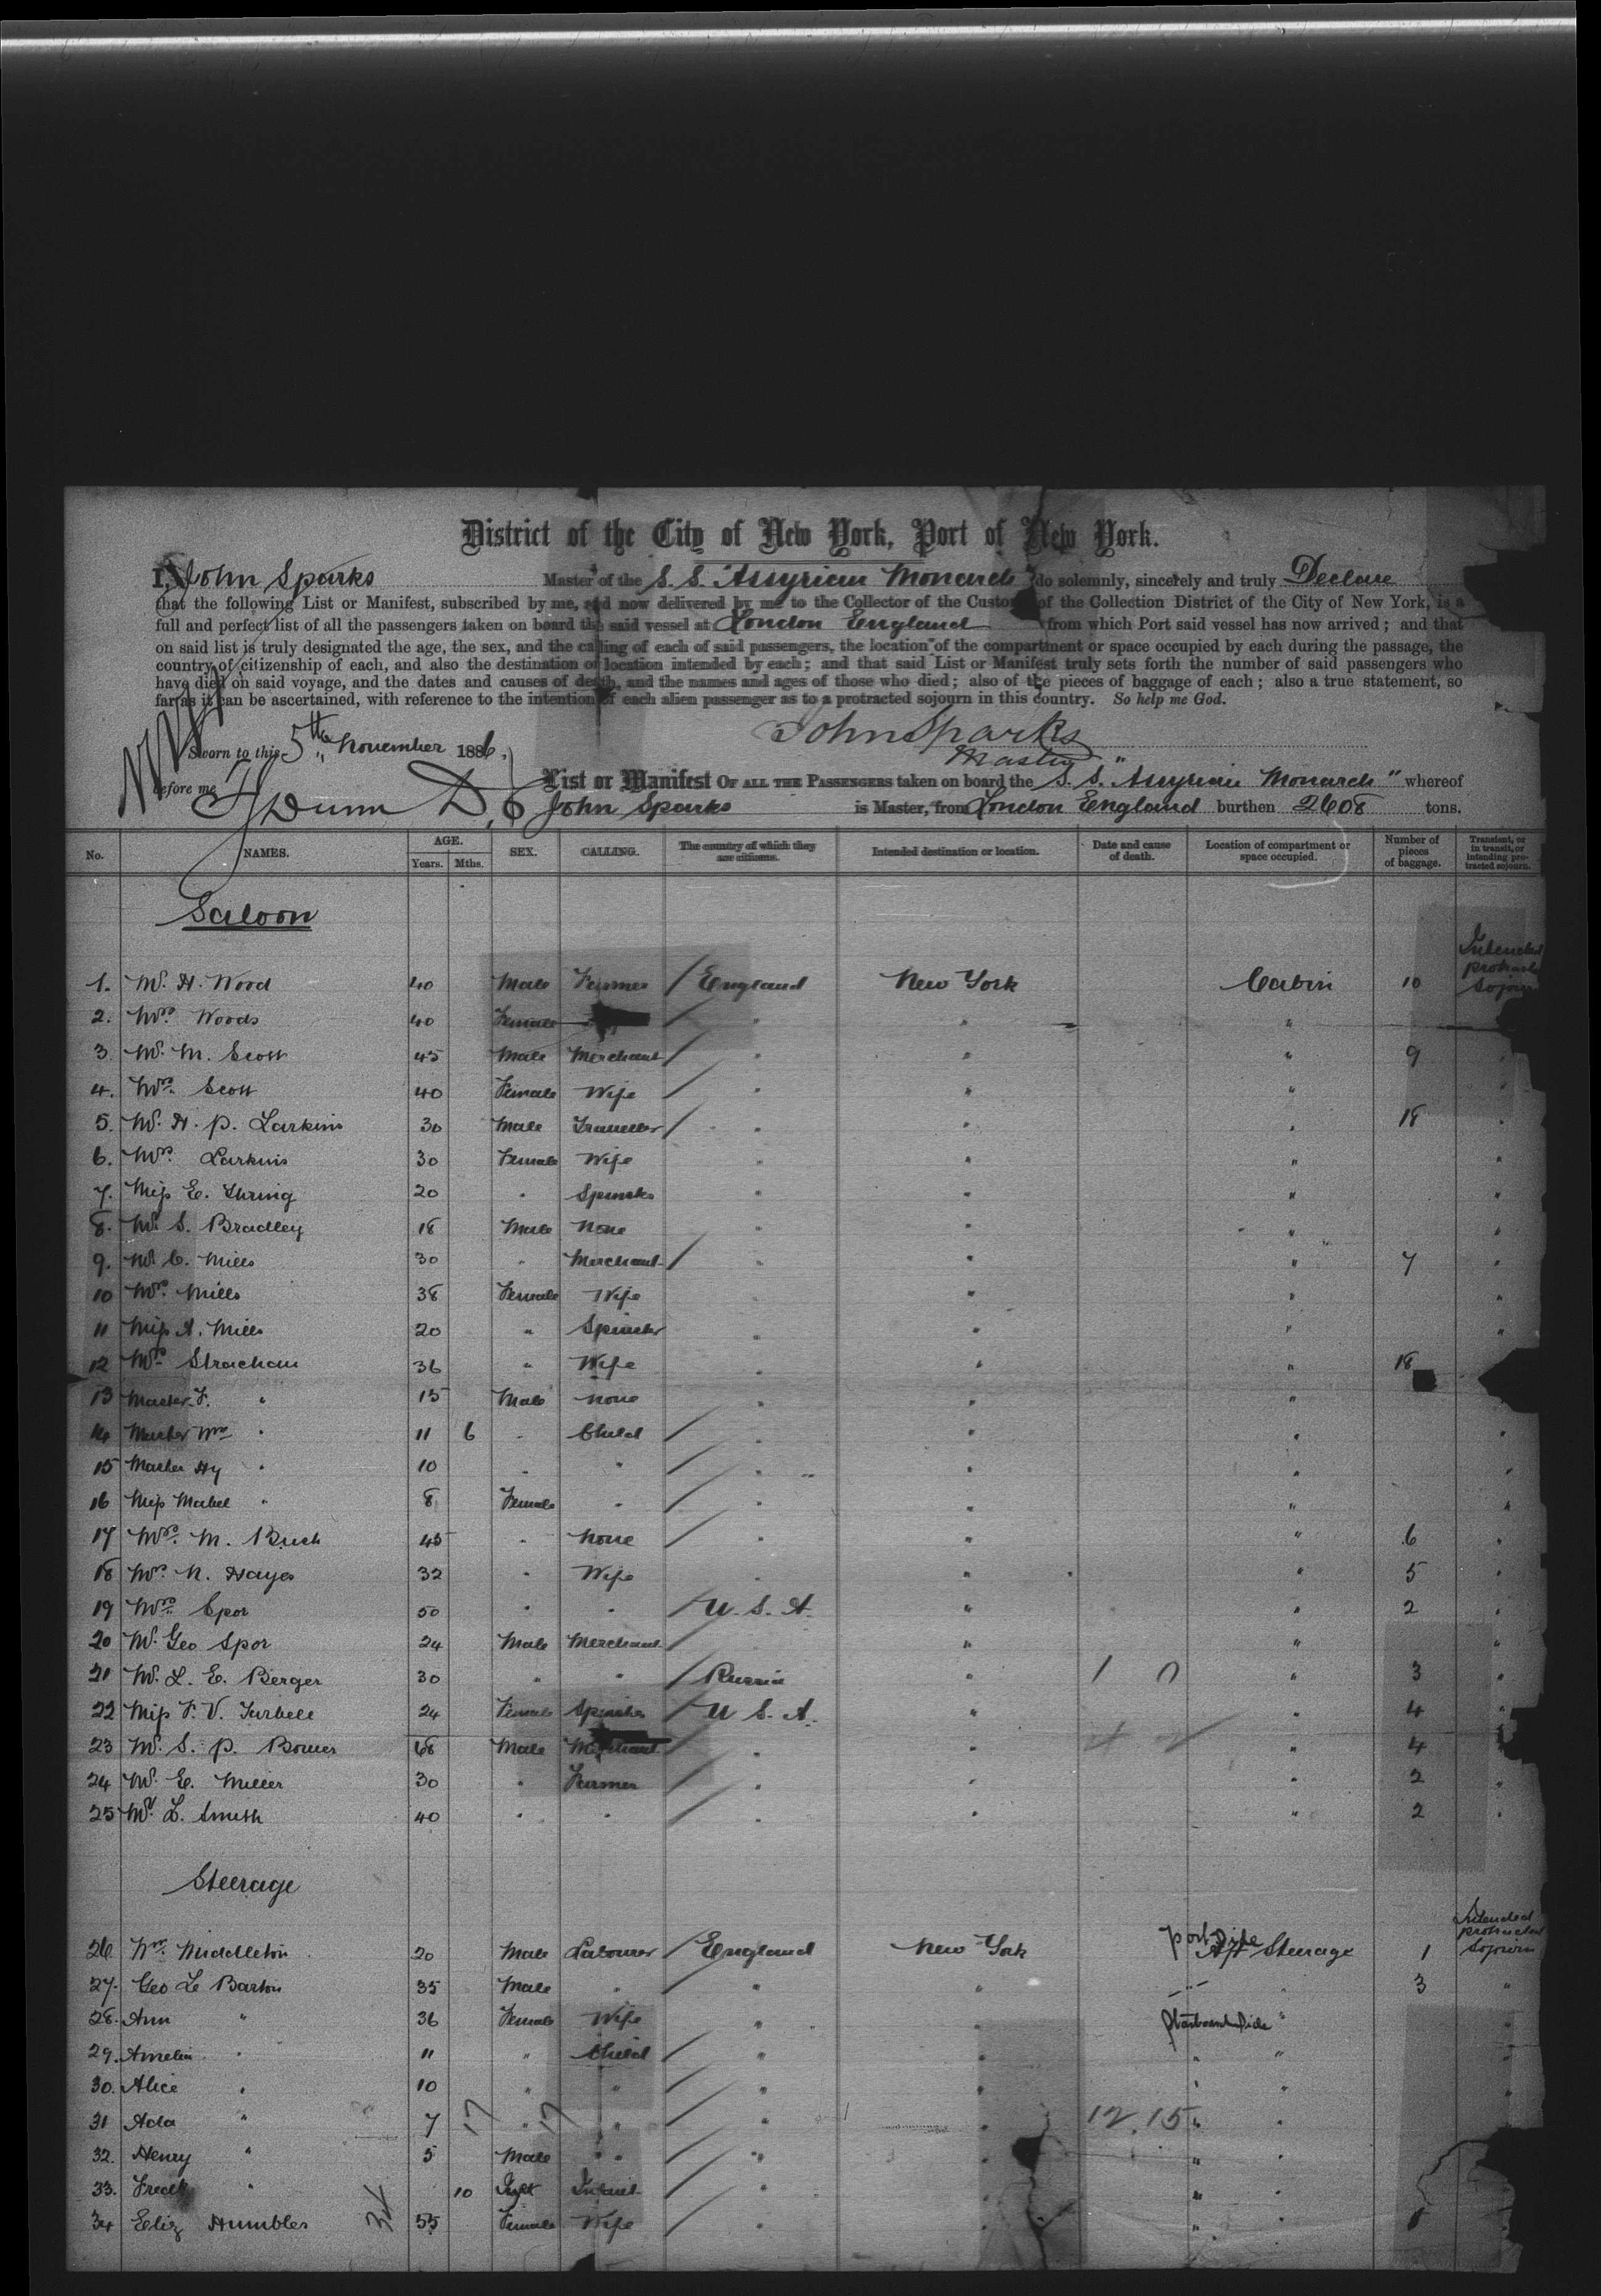 District of the City of New York, Port of New York.
I, John Sparks Master of the S. S. "Assyrian Monarch" do solemnly, sincerely and truly Declare
that the following List or Manifest, subscribed by me, and now delivered by me to the Collector of the Customs of the Collection District of the City of New York, is a
full and perfect list of all the passengers taken on board the said vessel at London England from which Port said vessel has now arrived; and that
on said list is truly designated the age, the sex, and the calling of each of said passengers, the location of the compartment or space occupied by each during the passage, the
country of citizenship of each, and also the destination or location intended by each; and that said List or Manifest truly sets forth the number of said passengers who
have died on said voyage, and the dates and causes of death, and the names and ages of those who died; also of the pieces of baggage of each; also a true statement, so
far as it can be ascertained, with reference to the intention of each alien passenger as to a protracted sojourn in this country. So help me God.
John Sparks
Master
Sworn to this 5th November 1886,
before me Dunn D. C
List or Manifest OF ALL THE PASSENGERS taken on board the S. S. Assyrian Monarch" whereof
John Sparks is Master, from London England burthen 2608 tons.
No. NAMES. AGE. Years. Mths. SEX. CALLING. The country of which they are citizens. Intended destination or location. Date and cause of death. Location of compartment or space occupied. Number of pieces of baggage. Transient, or in transit, or intending protracted sojourn.
Saloon
1. Mr. H. Wood 40 Male Farmer / England New York Cabin 10 Intended protracted Sojourn
2. Mrs. Woods 40 Female / " " "
3. Mr. M. Scott 45 Male Merchant / " " " 9 "
4. Mrs. Scott 40 Female Wife / " " " "
5. Mr. H. P. Larkins 30 Male Traveller / " " " 18 "
6. Mrs. Larkins 30 Female Wife " " " "
7. Miss E. Thring 20 " Spinster " " " "
8. Mr. S. Bradley 18 Male None " " " "
9. Mr C. Mills 30 " Merchant / " " " 7 "
10 Mrs. Mills 38 Female Wife " " " "
11 Miss A. Mills 20 " Spinster " " " "
12 Mrs. Strachan 36 " Wife " " " 18
13 Master F. " 15 Male None " " "
14 Master Wm " 11 6 " Child / " " " "
15 Master Hy " 10 " " / " " " "
16 Miss Mabel " 8 Female " / " " " "
17 Mrs. M. Bush 45 " None / " " " 6 "
18 Mrs. N. Hayes 32 " Wife " " " 5 "
19 Mrs. Spor 50 " " / U. S. A. " " 2 "
20 Mr. Geo Spor 24 Male Merchant / " " " "
21 Mr. L. E. Berger 30 " " / Russia " " 3 "
22 Miss F. V. Turbell 24 Female Spinster / U S. A. " " 4 "
23 Mr. S. P. Bowers 68 Male Merchant / " " " 4 "
24 Mr. E. Miller 30 " Farmer / " " " 2 "
25 Mr. L. Smith 40 " " / " " " 2 "
Steerage
26 Wm. Middleton 20 Male Labourer / England New York Port Side Aft Steerage 1 Intended protracted Sojourn
27. Geo Le Barton 35 Male " / " " " 3 "
28. Ann " 36 Female Wife / " " Starboard Side " "
29. Amelia " 11 " Child / " " " " "
30. Alice " 10 " " / " " " " "
31 Ada " 7 17 " 17 " / " " 12.15 " "
32. Henry " 5 Male " / " " " "
33. Fredk " 10 Infant / " " "
34 Eliz Humbles 55 Female Wife / " " " "